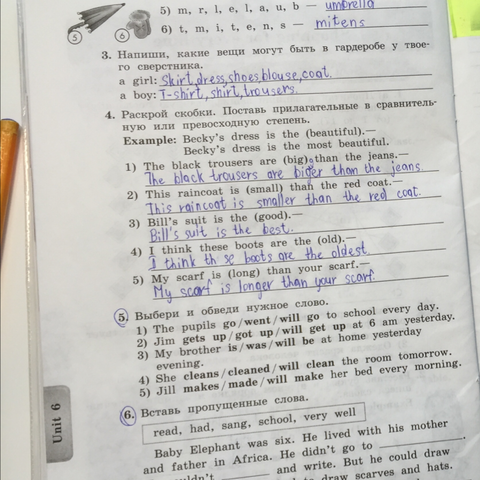 5) m, r, l, e, l, a, u, b — umbrella
6) t, m, i, t, e, n, s — mitens
5 6
3. Напиши, какие вещи могут быть в гардеробе у твое-
го сверстника.
a girl: Skirt, dress, shoes, blouse, coat.
a boy: T-shirt, shirt, trousers.
4. Раскрой скобки. Поставь прилагательные в сравнитель-
ную или превосходную степень.
Example: Becky's dress is the (beautiful).—
Becky's dress is the most beautiful.
1) The black trousers are (big) than the jeans.—
The black trousers are biger than the jeans.
2) This raincoat is (small) than the red coat.—
This raincoat is smaller than the red coat.
3) Bill's suit is the (good).—
Bill's suit is the best.
4) I think these boots are the (old).—
I think th se boots are the oldest.
5) My scarf is (long) than your scarf.—
My scarf is longer than your scarf.
5. Выбери и обведи нужное слово.
1) The pupils go/went/will go to school every day.
2) Jim gets up/got up/will get up at 6 am yesterday.
3) My brother is/was/will be at home yesterday
evening.
4) She cleans/cleaned/will clean the room tomorrow.
5) Jill makes/made/will make her bed every morning.
Unit 6
6. Вставь пропущенные слова.
read, had, sang, school, very well
Baby Elephant was six. He lived with his mother
and father in Africa. He didn't go to
and write. But he could draw
draw scarves and hats.